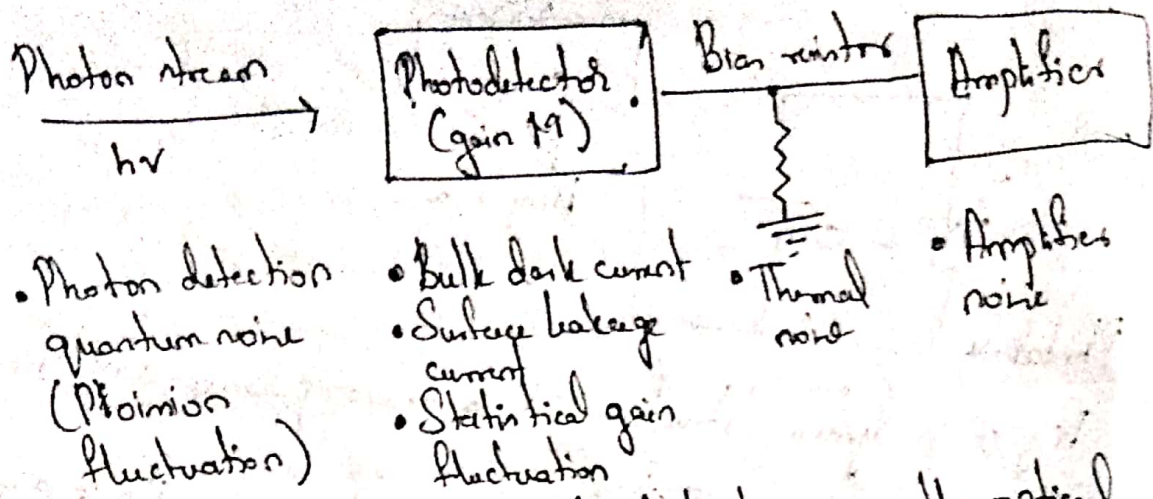 Photon stream
hν
Photodetector
(gain M)
Bias resistor
Amplifier
• Photon detection
quantum noise
(Poission
fluctuation)
• Bulk dark current
• Surface leakage
current
• Statistical gain
fluctuation
• Thermal
noise
• Amplifier
noise
optical